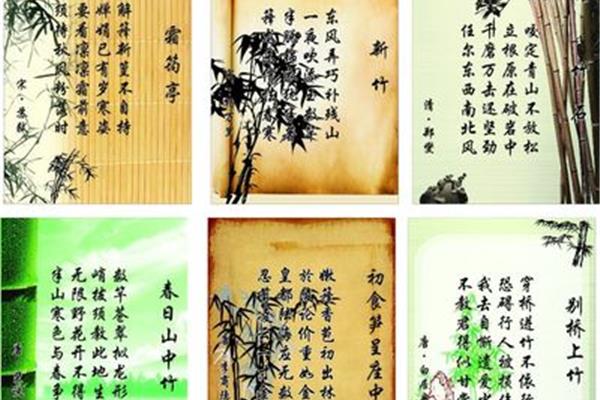 霜筠亭
解箨新篁不自持
婵娟已有岁寒姿
要看凛凛霜前意
须待秋风粉落时
宋·苏轼
新竹
东风弄巧补残山
一夜吹添玉数
半脱
箨 寒
竹石
咬定青山不放松
立根原在破岩中
千磨万击还坚劲
任尔东西南北风
清·郑燮
春日山中竹
数竿苍翠拟龙形
峭拔须教此地生
无限野花开不得
半山寒色与春争
初食笋呈座中
嫩箨香苞初出林
於陵论价重如金
皇都陆海应无数
忍
别桥上竹
穿桥迸竹不依行
恐碍行人被损伤
我去自惭遗爱少
不教君得似甘棠
唐·白居